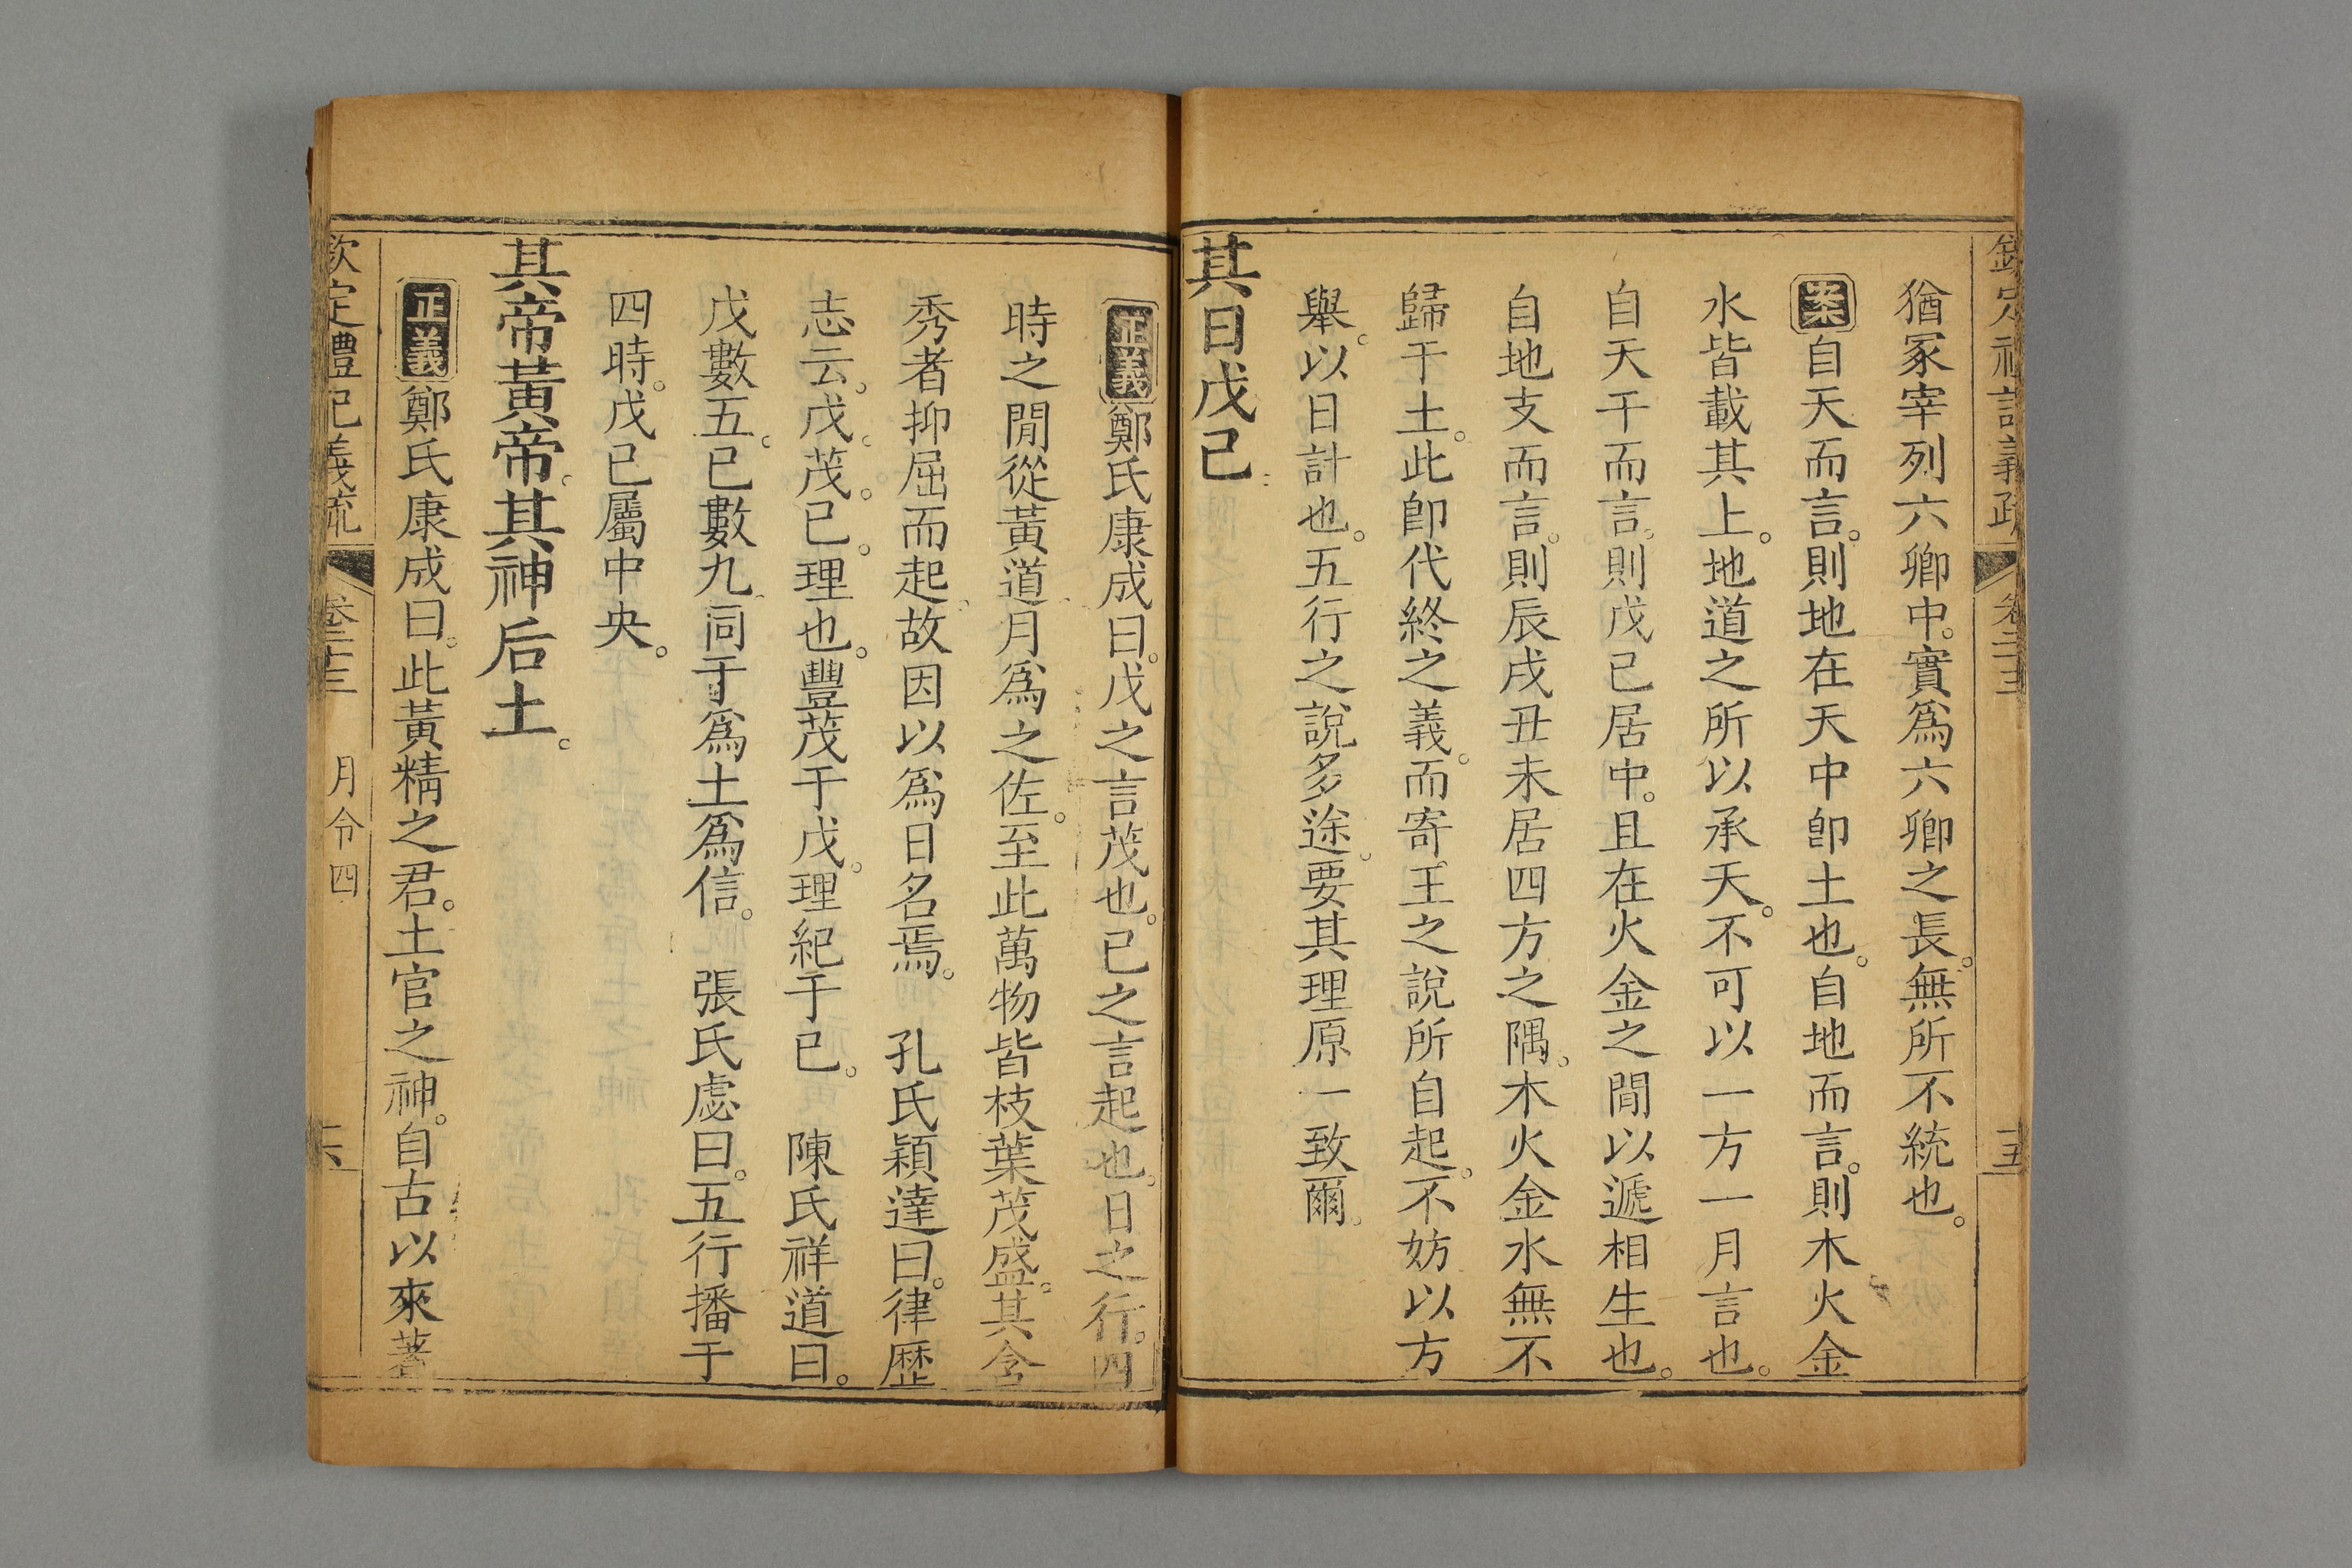 欽定禮記義疏 卷二十三 十五
猶冢宰列六卿中。實爲六卿之長。無所不統也。
案自天而言。則地在天中卽土也。自地而言。則木火金
水皆載其上。地道之所以承天。不可以一方一月言也。
自天干而言。則戊己居中。且在火金之閒以遞相生也。
自地支而言。則辰戌丑未居四方之隅。木火金水無不
歸于土。此卽代終之義。而寄王之說所自起。不妨以方
舉。以日計也。五行之說多途。要其理原一致爾。
其日戊己
正義鄭氏康成曰。戊之言茂也。己之言起也。日之行。四
時之閒從黃道。月爲之佐。至此萬物皆枝葉茂盛。其含
秀者抑屈而起。故因以爲日名焉。 孔氏穎達曰。律歷
志云。戊。茂。己。理也。豐茂于戊。理紀于己。 陳氏祥道曰。
戊數五。己數九。同于爲土爲信。 張氏虙曰。五行播于
四時。戊己屬中央。
其帝黃帝。其神后土。
正義鄭氏康成曰。此黃精之君。土官之神。自古以來著
欽定禮記義疏 卷二十三 月令四 十六